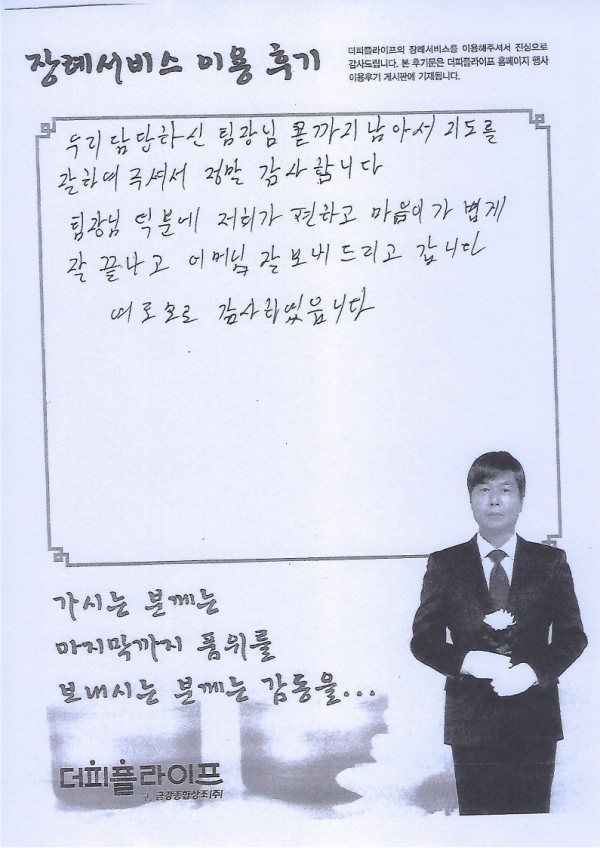 장례서비스 이용 후기
더피플라이프의 장례서비스를 이용해주셔서 진심으로
감사드립니다. 본 후기문은 더피플라이프 홈페이지 행사
이용후기 게시판에 기재됩니다.
우리 담당하신 팀장님 끝까지 남아서 지도를
잘하여 주셔서 정말 감사합니다
팀장님 덕분에 저희가 편하고 마음이 가볍게
잘 끝나고 어머님 잘 보내 드리고 갑니다
여로모로 감사하였읍니다
가시는 분께는
마지막까지 품위를
보내시는 분께는 감동을...
더피플라이프
구, 금강종합상조(주)